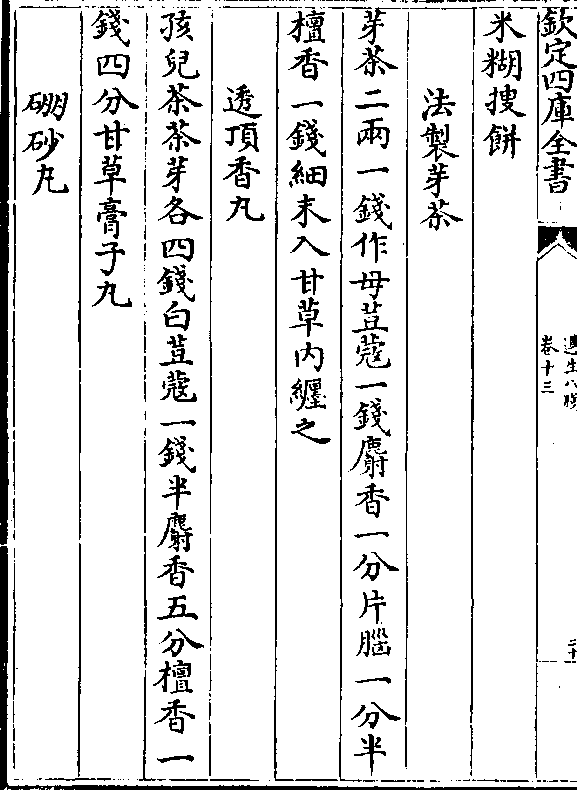 欽定四庫全書
遵生八牋
卷十三
米糊搜餅
法製芽茶
芽茶二兩一錢作母荳蔻一錢麝香一分片腦一分半
檀香一錢細末入甘草内纏之
透頂香丸
孩兒茶茶芽各四錢白荳蔻一錢半麝香五分檀香一
錢四分甘草膏子丸
硼砂丸